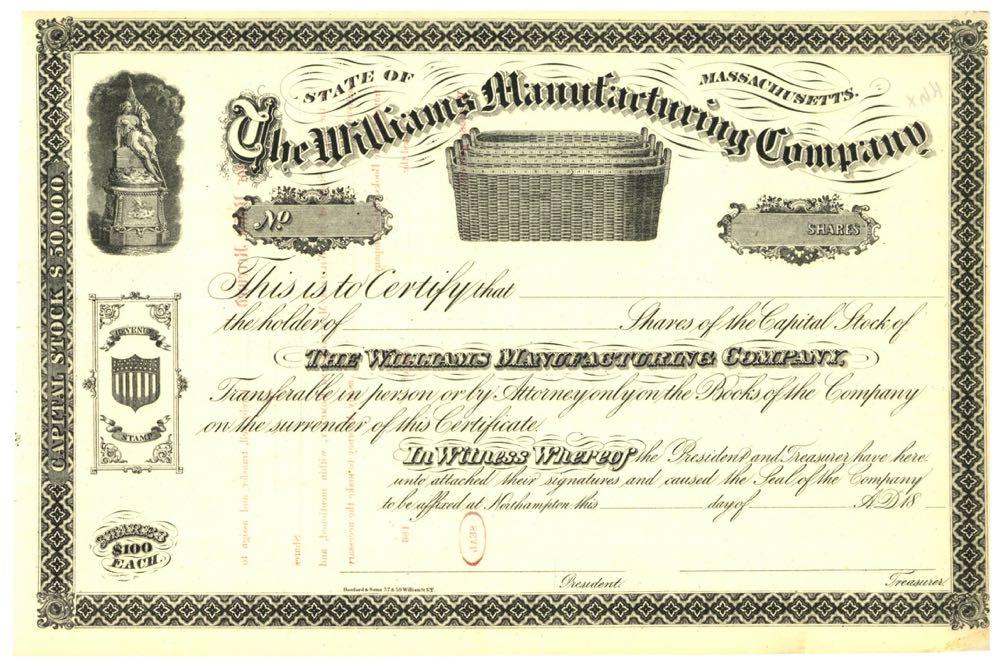 STATE OF MASSACHUSETTS.
The Williams Manufacturing Company
No
SHARES
CAPITAL STOCK $ 50.000
This is to Certify that
the holder of Shares of the Capital Stock of
THE WILLIAMS MANUFACTURING COMPANY,
Transferable in person or by Attorney only on the Books of the Company
on the surrender of this Certificate.
REVENUE
STAMP
In Witness Whereof the President and Treasurer have here-
unto attached their signatures and caused the Seal of the Company
to be affixed at Northampton this day of A.D. 18
SHARES
$100
EACH.
SEAL
President.
Treasurer.